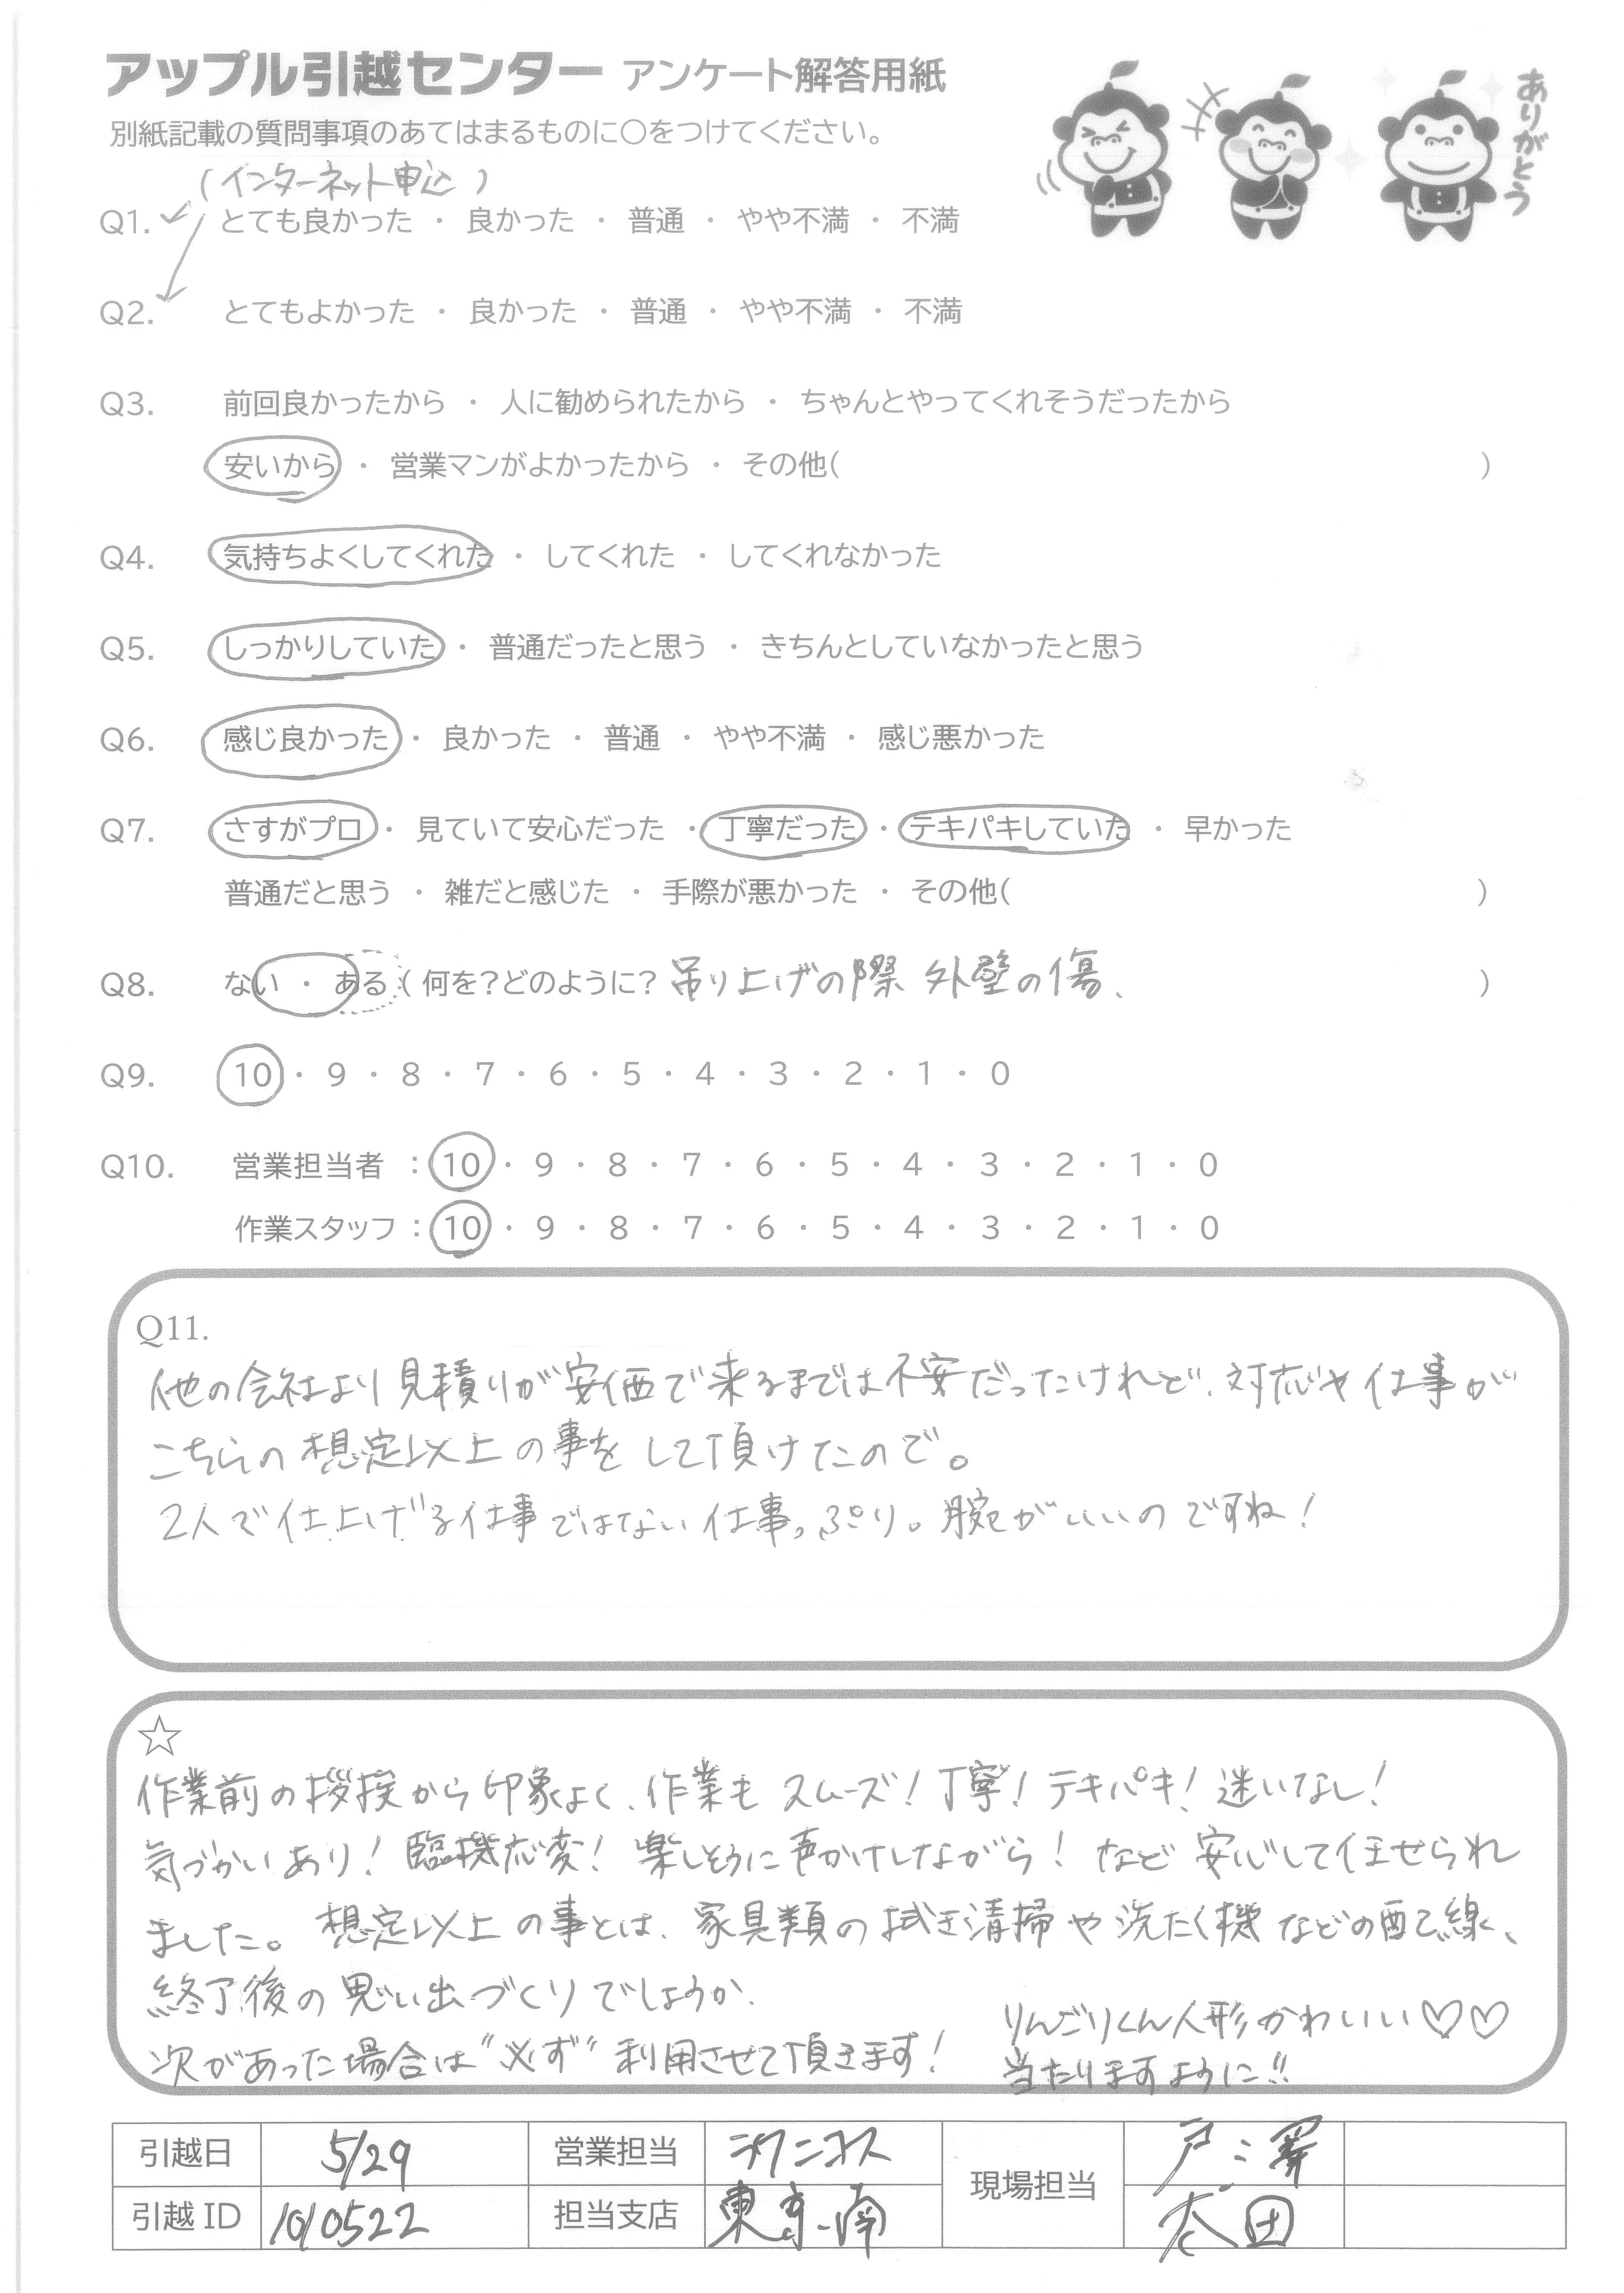 アップル引越センター アンケート解答用紙
別紙記載の質問事項のあてはまるものに○をつけてください。
ありがとう
(インターネット申込)
Q1. とても良かった ・ 良かった ・ 普通 ・ やや不満 ・ 不満
Q2. とてもよかった ・ 良かった ・ 普通 ・ やや不満 ・ 不満
Q3. 前回良かったから ・ 人に勧められたから ・ ちゃんとやってくれそうだったから
安いから ・ 営業マンがよかったから ・ その他( )
Q4. 気持ちよくしてくれた ・ してくれた ・ してくれなかった
Q5. しっかりしていた ・ 普通だったと思う ・ きちんとしていなかったと思う
Q6. 感じ良かった ・ 良かった ・ 普通 ・ やや不満 ・ 感じ悪かった
Q7. さすがプロ ・ 見ていて安心だった ・ 丁寧だった ・ テキパキしていた ・ 早かった
普通だと思う ・ 雑だと感じた ・ 手際が悪かった ・ その他( )
Q8. ない ・ ある ( 何を?どのように? 吊り上げの際 外壁の傷、 )
Q9. 10 ・ 9 ・ 8 ・ 7 ・ 6 ・ 5 ・ 4 ・ 3 ・ 2 ・ 1 ・ 0
Q10. 営業担当者 : 10 ・ 9 ・ 8 ・ 7 ・ 6 ・ 5 ・ 4 ・ 3 ・ 2 ・ 1 ・ 0
作業スタッフ : 10 ・ 9 ・ 8 ・ 7 ・ 6 ・ 5 ・ 4 ・ 3 ・ 2 ・ 1 ・ 0
Q11.
他の会社より見積りが安価で来るまでは不安だったけれど、対応や仕事が
こちらの想定以上の事をして頂けたので。
2人で仕上げる仕事ではない仕事っぷり。腕がいいのですね!
☆
作業前の挨拶から印象よく、作業もスムーズ!丁寧!テキパキ!迷いなし!
気づかいあり!臨機応変!楽しそうに声かけしながら!など安心して任せられ
ました。想定以上の事とは、家具類の拭き清掃や洗たく機などの配線、
終了後の思い出づくりでしょうか。
次があった場合は"必ず"利用させて頂きます!
りんごりくん人形かわいい♡♡
当たりますように!!
引越日 5/29 営業担当 ラクニコス 現場担当 戸澤
引越ID 1010522 担当支店 東京南 太田